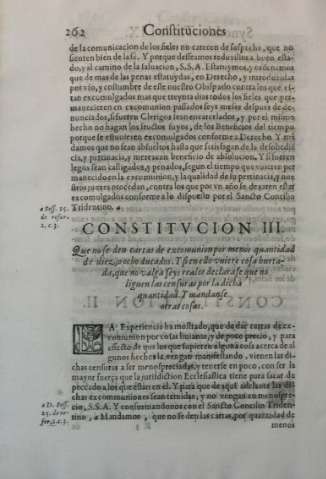 262 Constituciones
de la comunicacion de los fieles no carecen de sospecha, que no
sienten bien de la fè. Y porque deseamos reduzirlos a buen esta-
do, y al camino de la saluacion, S.S.A. Estatuymos, y ordenamos
que de mas de las penas estatuydas, en Derecho, y introduzidas
por vso, y costumbre de este nuestro Obispado contra los que es-
tan excomulgados mas que treynta dias todos los que per-
manecieren en excomunion passados seys meses despues de de-
nunciados, si fueren Clerigos sean encarcelados, y por el mismo
hecho no hagan los fructos suyos, de los beneficios del tiempo
porque se estuuieren excomulgados conforme a Derecho. Y mā
damos que no sean absueltos hasta que satisfagan de la desobedi-
cia, y pertinacia, y merezcan beneficio de absolucion. Y si fueren
legos sean castigados, y penados, segun el tiempo que vuieren per
manecido en la excomunion, y la qualidad de su pertinacia, y nue
stros juezes procedan, contra los que por vn año se dexaren estar
excomulgados conforme a lo dispuesto por el Sancto Concilio
Tridentino. a
a Sess. 25.
de refor.
c. 3.
CONSTITVCION III.
Que no se den cartas de excomunion por menor quantidad
de diez, y ocho ducados. Y si en ello vuiere cosa hurta-
da, que no valga seys reales declarase que no
liguen las censuras por la dicha
quantidad. Y mandanse
otras cosas.
LA Experiencia ha mostrado, que de dar cartas de ex-
comunion por cosas liuianas, y de poco precio, y para
effecto de que los que supieren alguna cosa acerca de al
gunos hechos la vengan manifestando, vienen las di-
chas censuras a ser menospreciadas, y tenerse en poco, con ser la
mayor fuerça que la jurisdiction Ecclesiastica tiene para sacar de
peccado, a los que estan en èl. Y para que de aqui adelante las di-
chas excommuniones sean temidas, y no vengan en menospre-
cio, S.S.A. Y conformandonos con el Sancto Concilio Triden-
tino, a Mandamos, que no se den las cartas, por quantidad de
a D. Sess.
25. de re-
for. c. 3.
menos